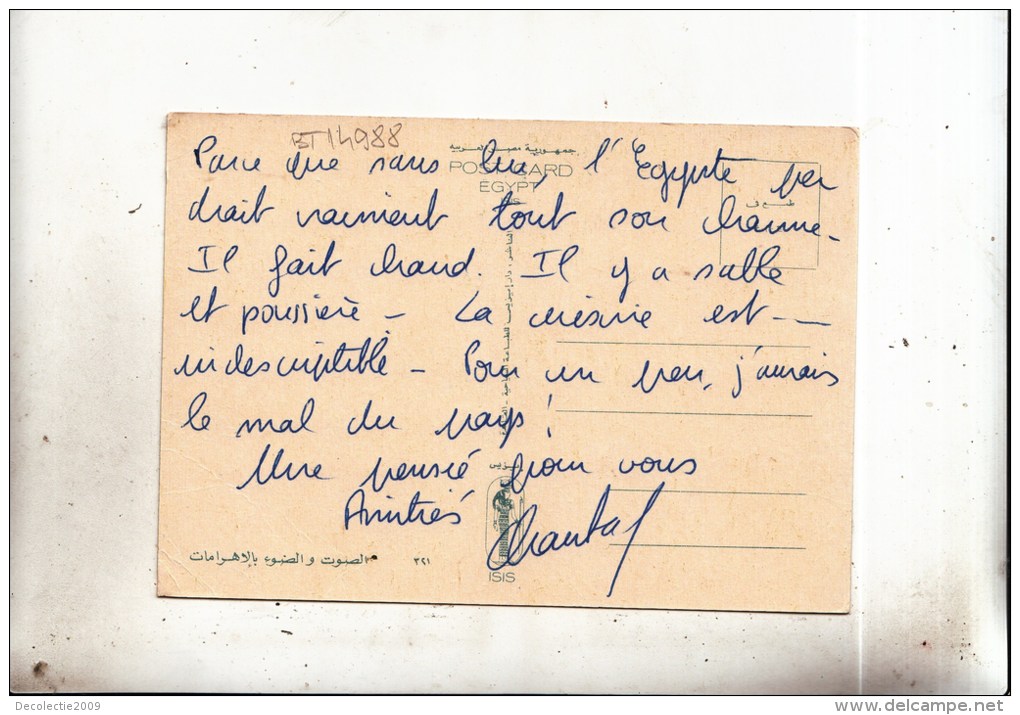 BT14988
Parce que sans lui, l'Egypte per
drait vraiment tout son charme.
Il fait chaud. Il y a sable
et poussière - La cuisine est ---
indescriptible - Pour un peu, j'aurais
le mal du pays!
Une pensée pour vous
Amitiés
Chantal
جمهورية مصر العربية
POST CARD
EGYPT
الصوت والضوء بالاهرامات
٣٢١
ISIS
Decolectie2009
delcampe.net